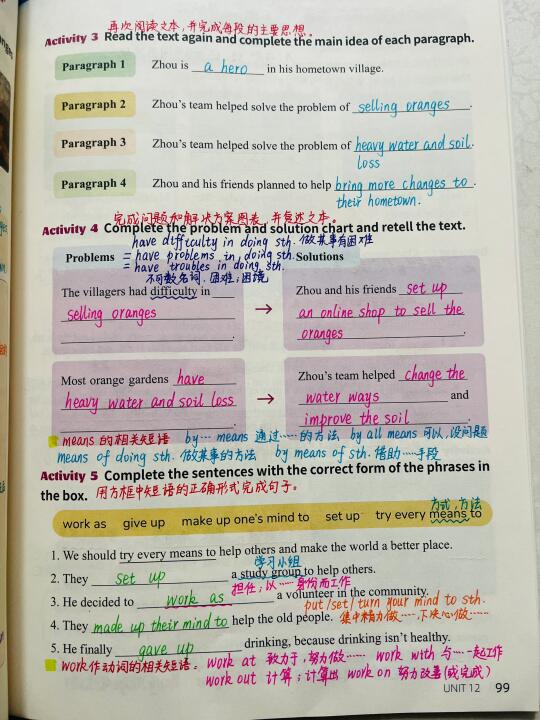 再次阅读文本,并完成每段的主要思想。
Activity 3 Read the text again and complete the main idea of each paragraph.
Paragraph 1 Zhou is a hero in his hometown village.
Paragraph 2 Zhou's team helped solve the problem of selling oranges.
Paragraph 3 Zhou's team helped solve the problem of heavy water and soil
loss
Paragraph 4 Zhou and his friends planned to help bring more changes to.
their hometown.
完成问题和解决方案图表,并复述文本。
Activity 4 Complete the problem and solution chart and retell the text.
have difficulty in doing sth. 做某事有困难
Problems = have problems in doing sth. Solutions
= have troubles in doing sth.
不可数名词. 困难;困境
The villagers had difficulty in
selling oranges.
→
Zhou and his friends set up
an online shop to sell the
oranges.
Most orange gardens have
heavy water and soil loss.
→
Zhou's team helped change the
water ways and
improve the soil.
means的相关短语 by… means 通过……的方法 by all means 可以,没问题
means of doing sth. 做某事的方法 by means of sth. 借助……手段
Activity 5 Complete the sentences with the correct form of the phrases in
the box. 用方框中短语的正确形式完成句子。
方式,方法
work as give up make up one's mind to set up try every means to
1. We should try every means to help others and make the world a better place.
学习小组
2. They set up a study group to help others.
担任;以……身份而工作
3. He decided to work as a volunteer in the community.
put/set/turn your mind to sth.
4. They made up their mind to help the old people. 集中精力做……,下决心做……
5. He finally gave up drinking, because drinking isn't healthy.
work作动词的相关短语。 work at 致力于,努力做…… work with 与……一起工作
work out 计算;计算出 work on 努力改善(或完成)
UNIT 12 99